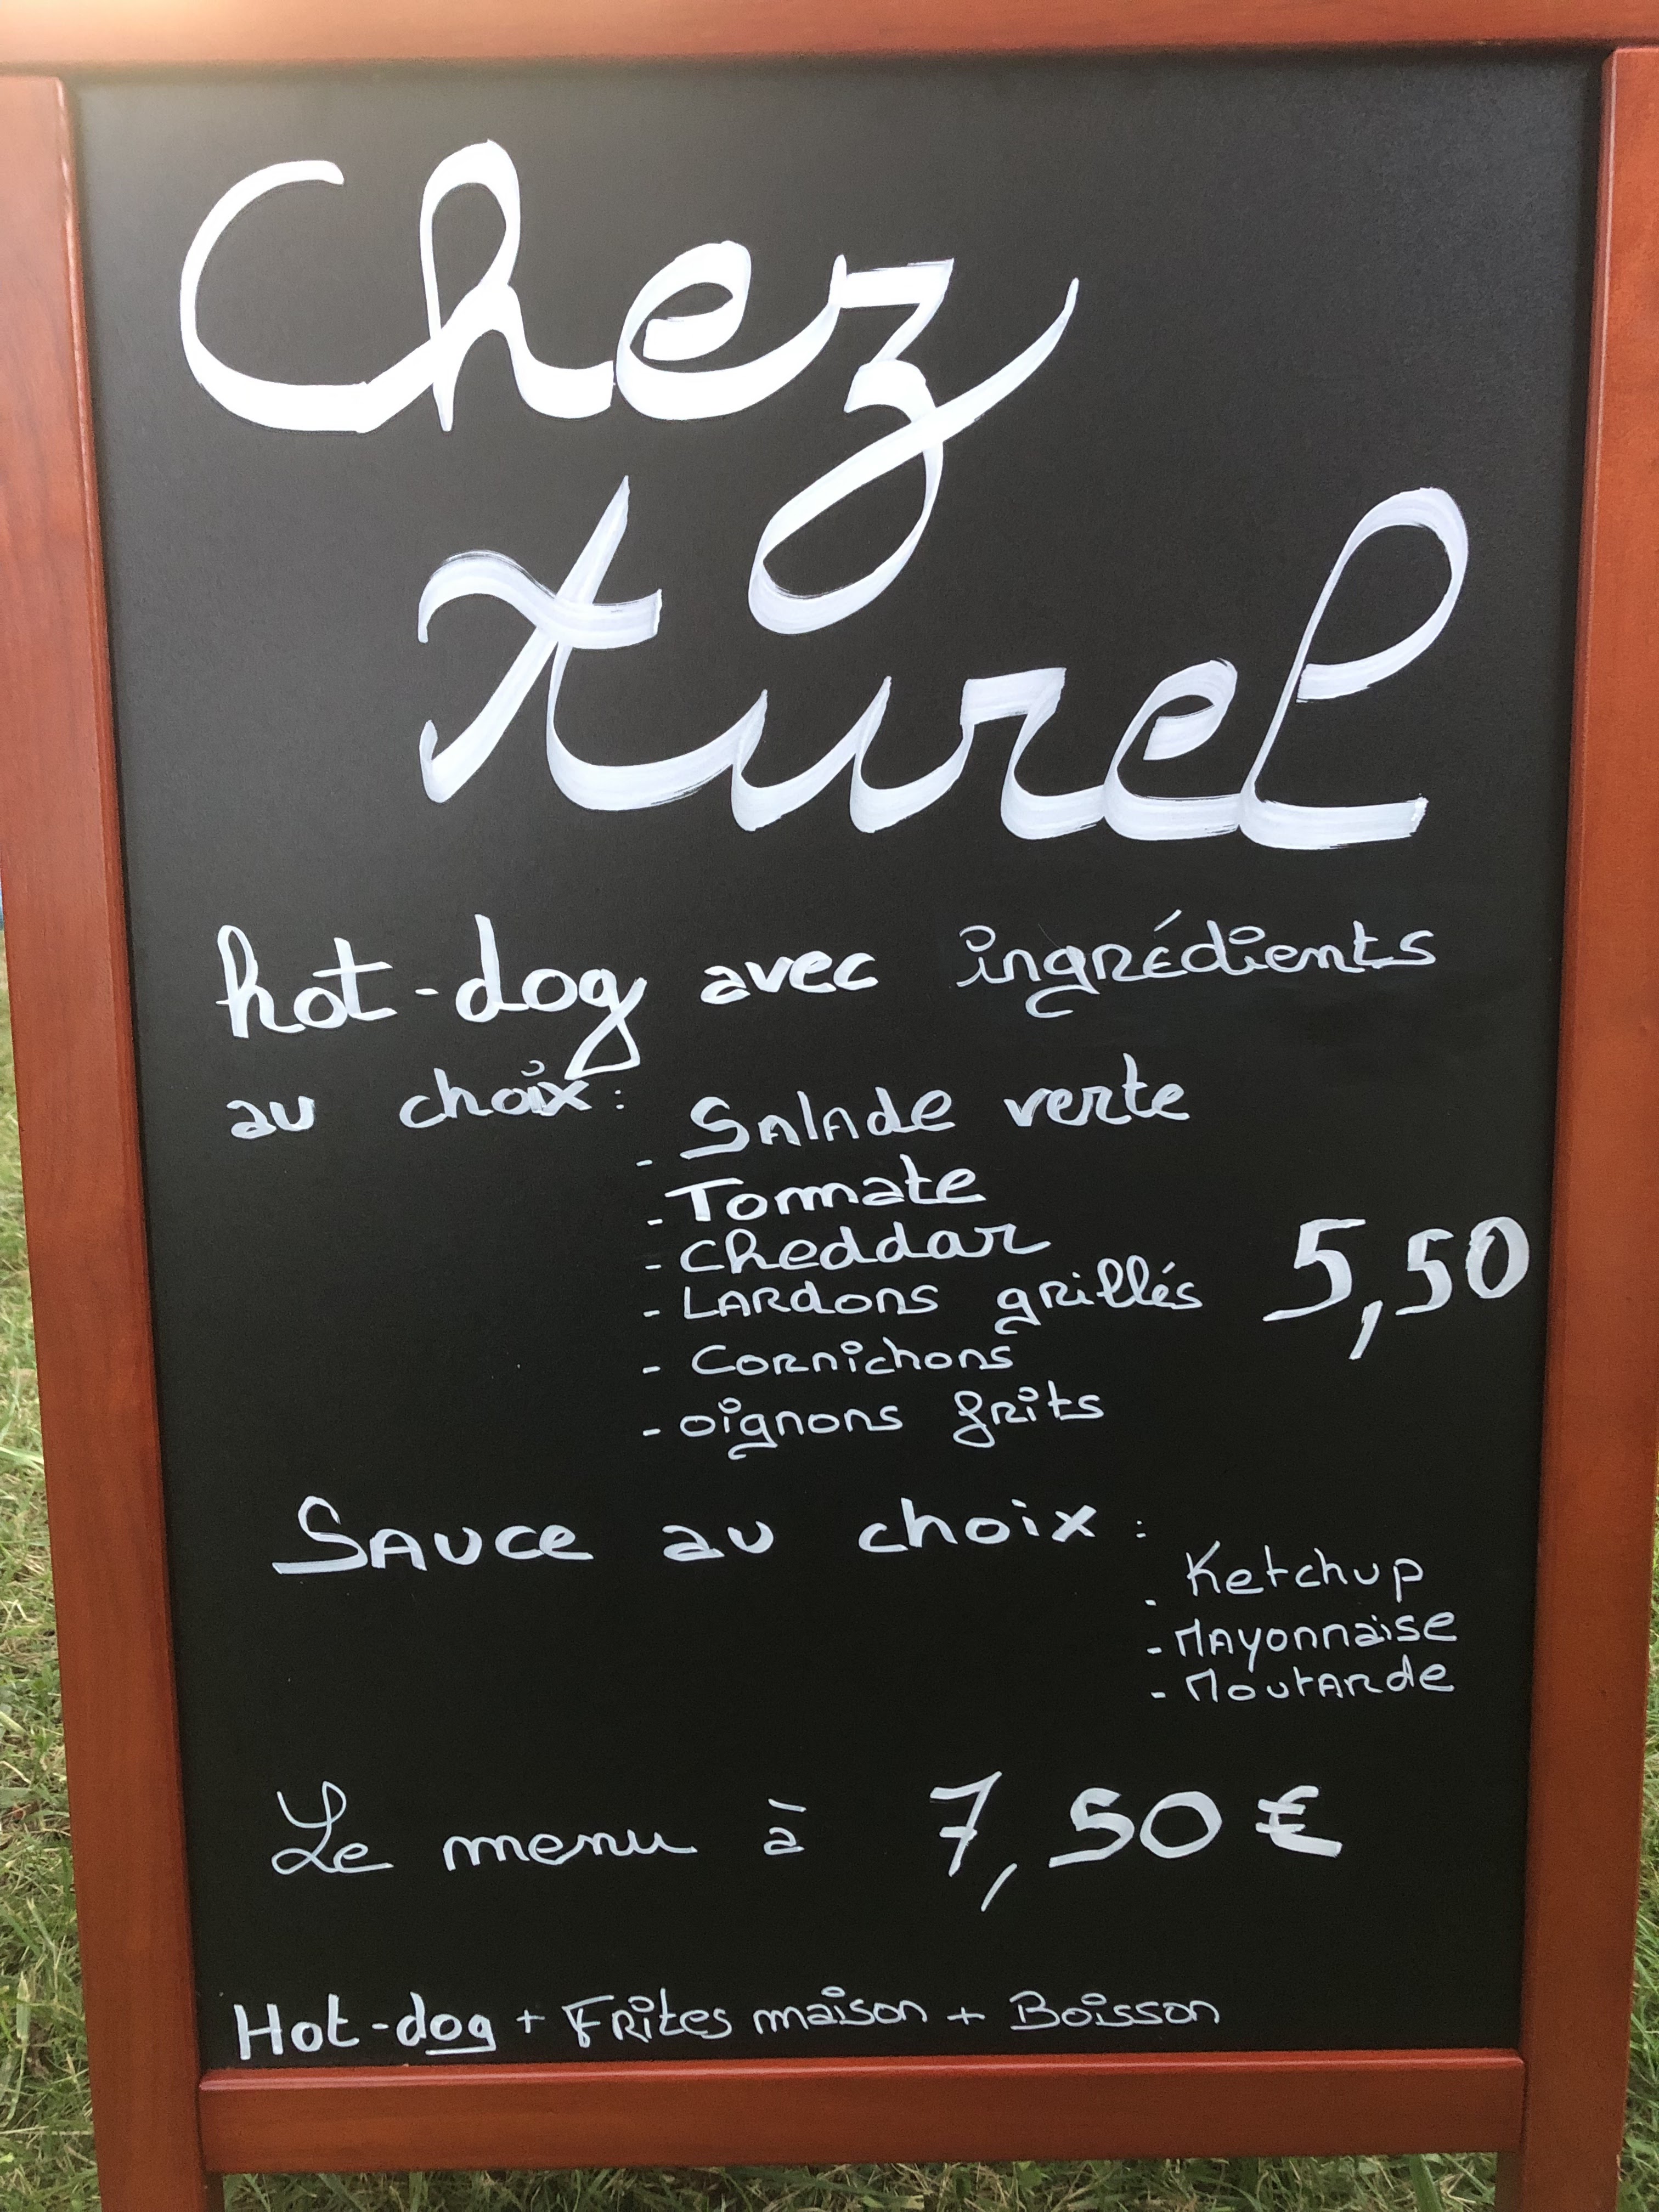 Chez
Aurel
hot-dog avec ingrédients
au choix :
- Salade verte
- Tomate
- Cheddar
- Lardons grillés
5,50
- Cornichons
- oignons frits
Sauce au choix :
- Ketchup
- Mayonnaise
- Moutarde
Le menu à 7,50 €
Hot-dog + Frites maison + Boisson